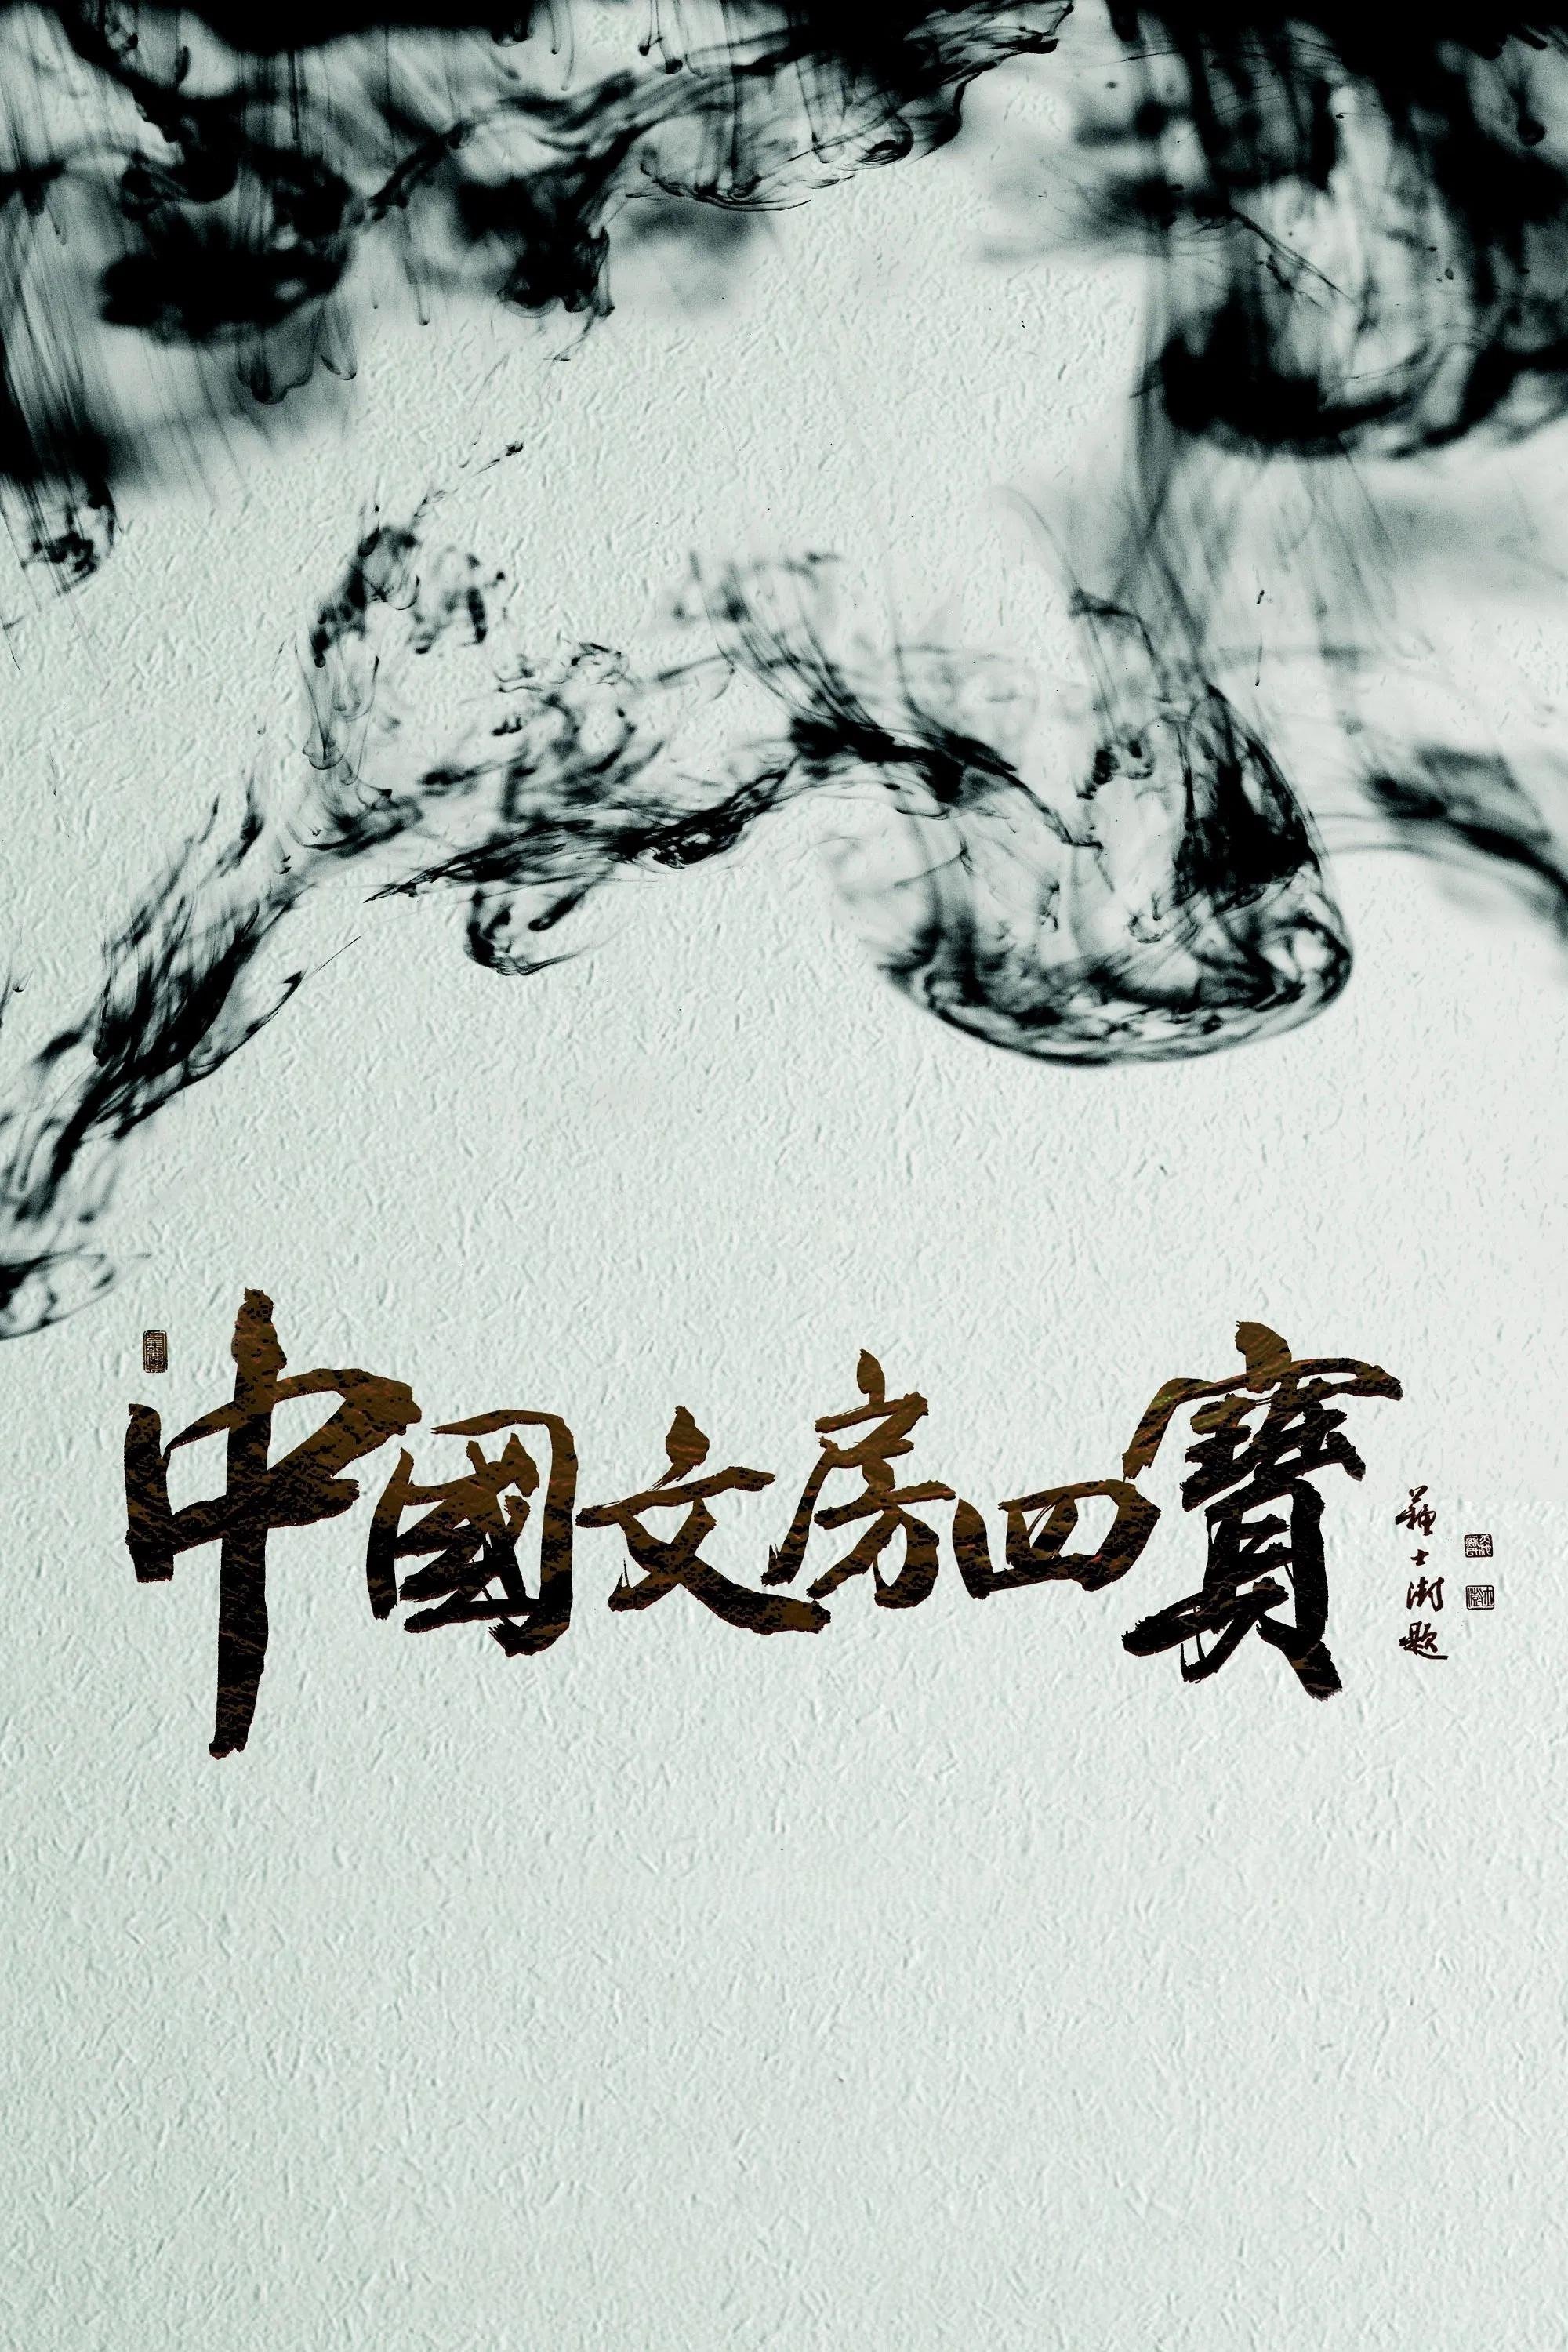 中國文房四寶
蘇士澍題